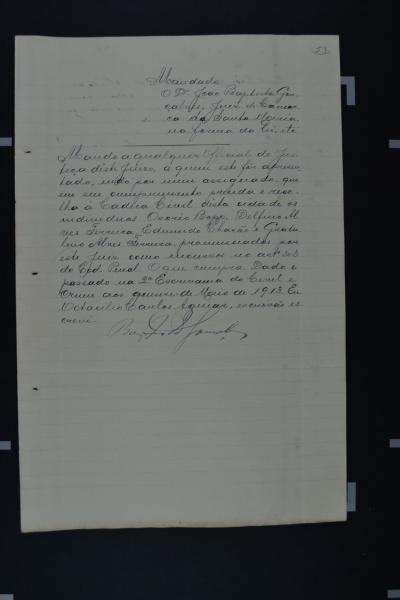 53
Mandado
O Dr. João Baptista Gon
çalves, Juiz de Comar
ca de Santa Maria
na forma da lei etc
Mando a qualquer official de Jus
tiça deste Juizo, a quem este fôr apresen
tado, indo por mim assignado, que
em seu cumprimento prenda e reco
lha á Cadêia Civil desta cidade os
individuos Osorio Bopp, Delfino Al
ves Ferreira, Edmundo Chacão e
Alves Ferreira, pronunciados por
este Juiz como incursos no art. 303
do Cod. Penal. O que cumpra. Dado e
passado na 2ª Escrivania do Civel e
Crime aos quinze de Maio de 1913. Eu
Octacilio Carlos Aguiar, escrivão es
crevi.